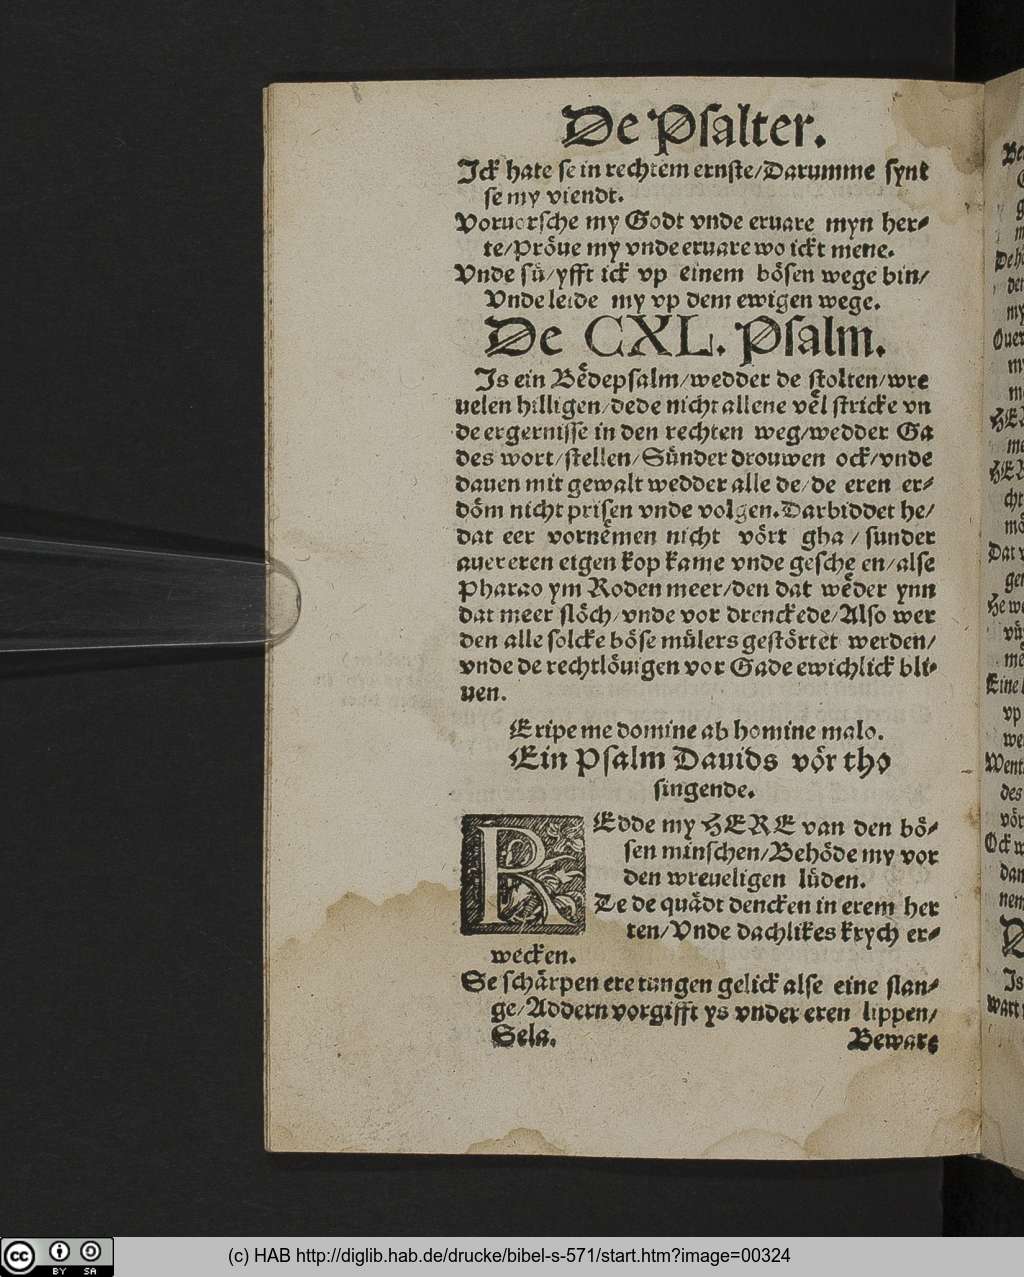 De Psalter.
Jck hate se in rechtem ernste/Darumme synt
se my viendt.
Voruorsche my Godt vnde eruare myn her⸗
te/Pröue my vnde eruare wo ickt mene.
Vnde sü/yfft ick vp einem bösen wege bin/
Vnde leide my vp dem ewigen wege.
De CXL. Psalm.
Js ein Bëdepsalm/wedder de stolten/wre
uelen hilligen/dede nicht allene vël stricke vn
de ergernisse in den rechten weg/wedder Ga
des wort/stellen/Sünder drouwen ock/vnde
dauen mit gewalt wedder alle de/de eren er⸗
döm nicht prisen vnde volgen. Darbiddet he/
dat eer vornëmen nicht vört gha/sunder
auer eren eigen kop kame vnde gesche en/alse
Pharao ym Roden meer/den dat wëder ynn
dat meer slöch/vnde vor drenckede/Also wer
den alle solcke böse mülers gestörtet werden/
vnde de rechtlöuigen vor Gade ewichlick bli⸗
uen.
Eripe me domine ab homine malo.
Ein Psalm Dauids vör tho
singende.
REdde my HERE van den bö⸗
sen minschen/Behöde my vor
den wreueligen lüden.
De de quädt dencken in erem her
ten/Vnde dachlikes krych er⸗
wecken.
Se schärpen ere tungen gelick alse eine slan⸗
ge/Addern vorgifft ys vnder eren lippen/
Sela. Beware
(c) HAB http://diglib.hab.de/drucke/bibel-s-571/start.htm?image=00324
cc BY SA